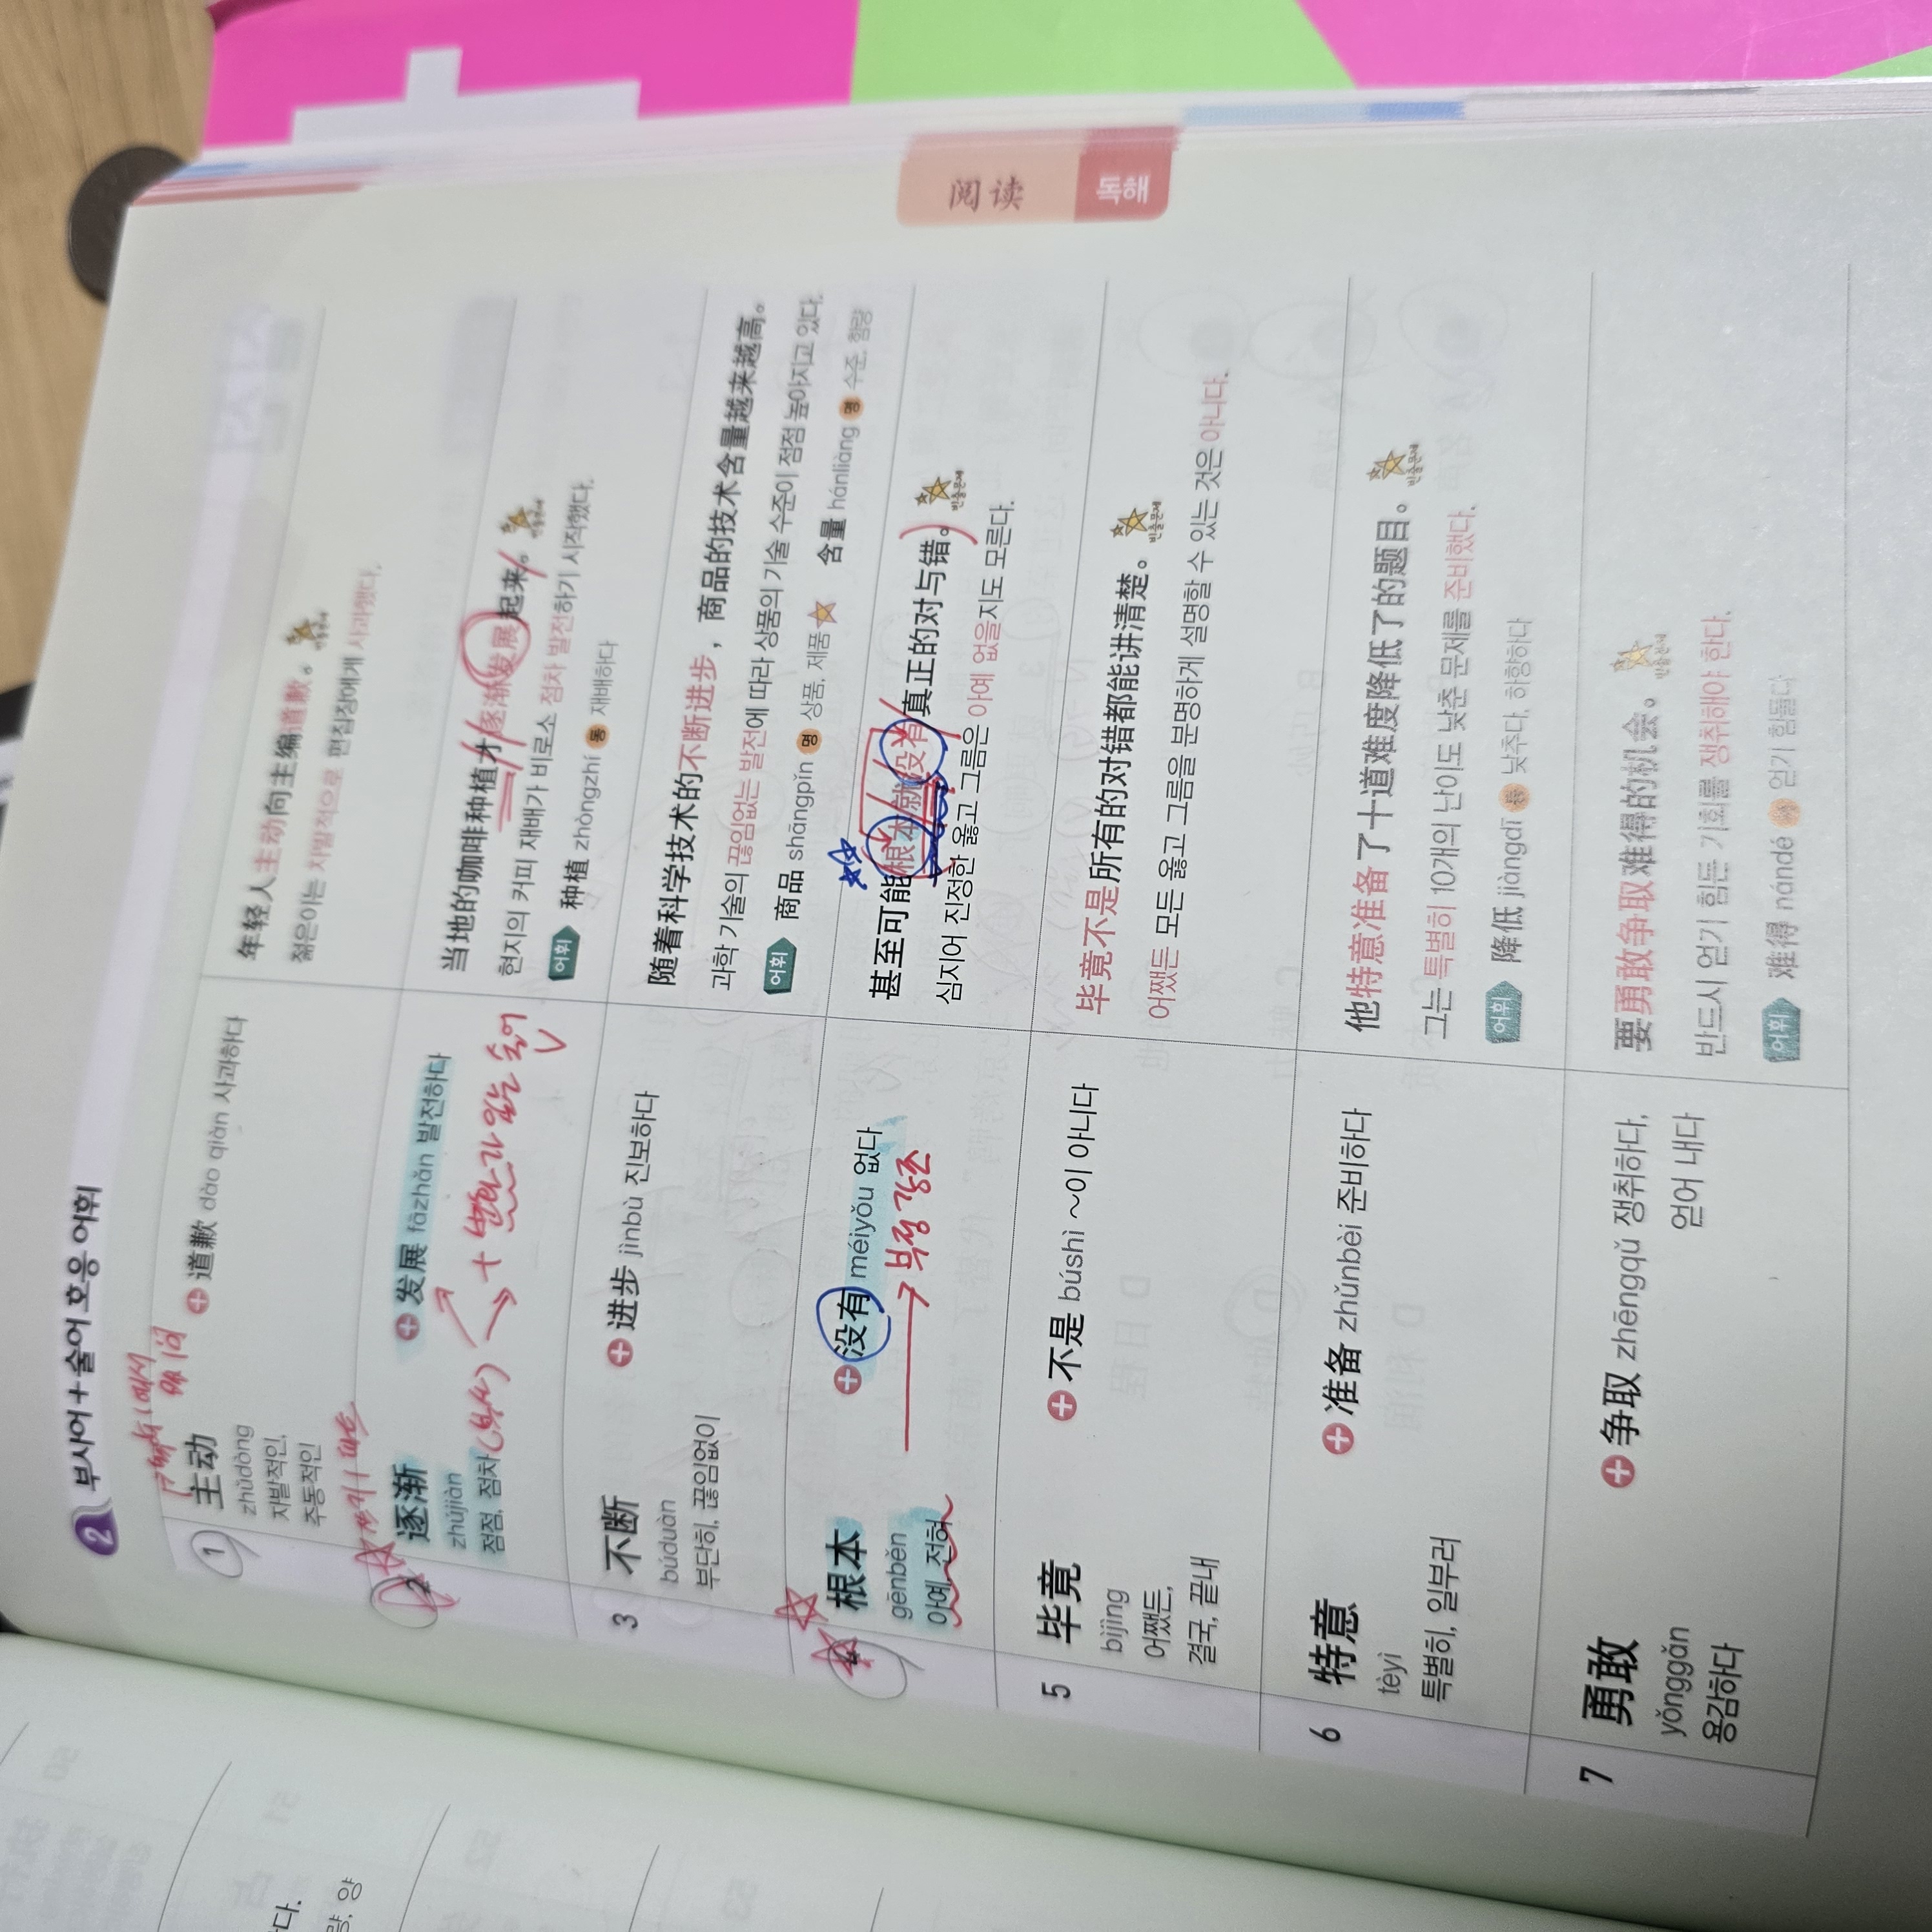 2 부사어+술어 호응 어휘
1
主动
zhǔdòng
자발적인,
주동적인
+ 道歉 dào qiàn 사과하다
年轻人主动向主编道歉。
빈출문제
젊은이는 자발적으로 편집장에게 사과했다.
2
逐渐
zhújiàn
점점, 점차
(부사)
+ 发展 fāzhǎn 발전하다
+ 변화가 있는 술어
当地的咖啡种植才逐渐发展起来。
빈출문제
현지의 커피 재배가 비로소 점차 발전하기 시작했다.
어휘 种植 zhòngzhí 동 재배하다
3
不断
búduàn
부단히, 끊임없이
+ 进步 jìnbù 진보하다
随着科学技术的不断进步，商品的技术含量越来越高。
과학 기술의 끊임없는 발전에 따라 상품의 기술 수준이 점점 높아지고 있다.
어휘 商品 shāngpǐn 명 상품, 제품 含量 hánliàng 명 수준, 함량
4
根本
gēnběn
아예, 전혀
+ 没有 méiyǒu 없다
부정 강조
甚至可能根本就没有真正的对与错。
빈출문제
심지어 진정한 옳고 그름은 아예 없을지도 모른다.
5
毕竟
bìjìng
어쨌든,
결국, 끝내
+ 不是 búshì ~이 아니다
毕竟不是所有的对错都能讲清楚。
빈출문제
어쨌든 모든 옳고 그름을 분명하게 설명할 수 있는 것은 아니다.
6
特意
tèyì
특별히, 일부러
+ 准备 zhǔnbèi 준비하다
他特意准备了十道难度降低了的题目。
빈출문제
그는 특별히 10개의 난이도 낮춘 문제를 준비했다.
어휘 降低 jiàngdī 동 낮추다, 하향하다
7
勇敢
yǒnggǎn
용감하다
+ 争取 zhēngqǔ 쟁취하다,
얻어 내다
要勇敢争取难得的机会。
빈출문제
반드시 얻기 힘든 기회를 쟁취해야 한다.
어휘 难得 nándé 얻기 힘들다
阅读
독해